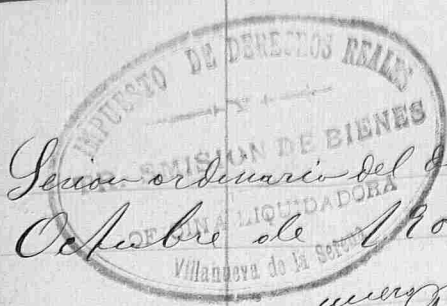 IMPUESTO DE DERECHOS REALES
TRANSMISION DE BIENES
OFICINA LIQUIDADORA
Villanueva de la Serena
Sesion ordinario del
Octubre de 190